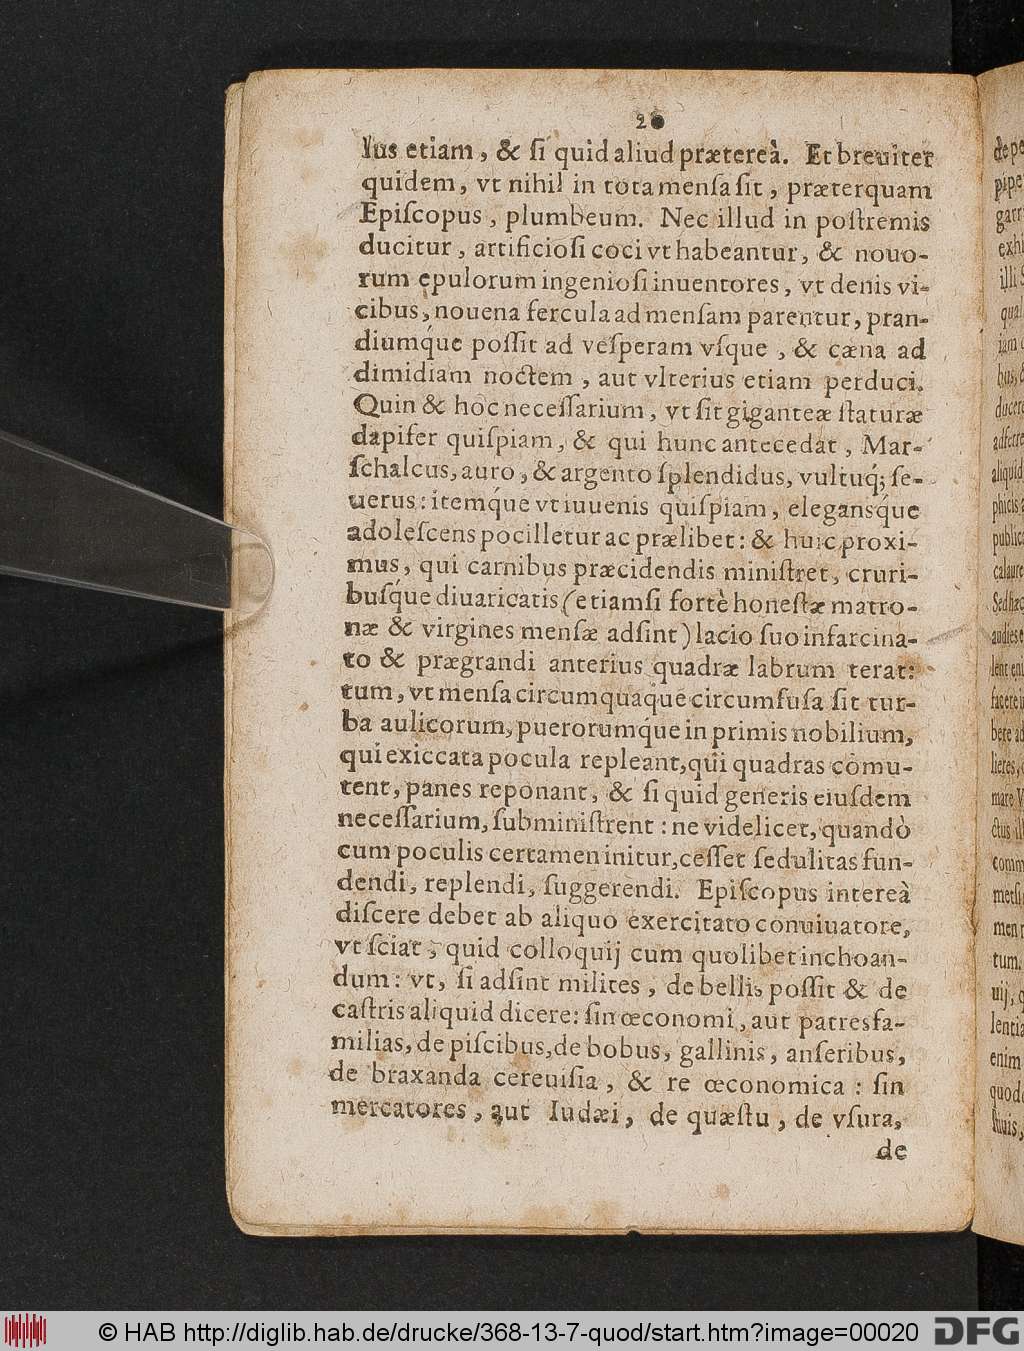 20
lus etiam, & ſi quid aliud prætereà. Et breuiter
quidem, vt nihil in tota menſa ſit, præterquam
Epiſcopus, plumbeum. Nec illud in poſtremis
ducitur, artificioſi coci vt habeantur, & nouo-
rum epulorum ingenioſi inuentores, vt denis vi-
cibus, nouena fercula ad menſam parentur, pran-
diumq́ue poſſit ad veſperam vſque, & cæna ad
dimidiam noctem, aut vlterius etiam perduci.
Quin & hoc neceſſarium, vt ſit giganteæ ſtaturæ
dapifer quiſpiam, & qui hunc antecedat, Mar-
ſchalcus, auro, & argento ſplendidus, vultuq́; ſe-
uerus: itemq́ue vt iuuenis quiſpiam, elegansq́ue
adoleſcens pocilletur ac prælibet: & huic proxi-
mus, qui carnibus præcidendis miniſtret, cruri-
buſq́ue diuaricatis (etiamſi fortè honeſtæ matro-
næ & virgines menſæ adſint) lacio ſuo infarcina-
to & prægrandi anterius quadræ labrum terat:
tum, vt menſa circumquaq́ue circumfuſa ſit tur-
ba aulicorum, puerorumq́ue in primis nobilium,
qui exiccata pocula repleant, qui quadras cōmu-
tent, panes reponant, & ſi quid generis eiuſdem
neceſſarium, ſubminiſtrent: ne videlicet, quandò
cum poculis certamen initur, ceſſet ſedulitas fun-
dendi, replendi, ſuggerendi. Epiſcopus intereà
diſcere debet ab aliquo exercitato conuiuatore,
vt ſciat, quid colloquij cum quolibet inchoan-
dum: vt, ſi adſint milites, de bellis poſſit & de
caſtris aliquid dicere: ſin œconomi, aut patresfa-
milias, de piſcibus, de bobus, gallinis, anſeribus,
de braxanda cereuiſia, & re œconomica: ſin
mercatores, aut Iudæi, de quæſtu, de vſura,
de
© HAB http://diglib.hab.de/drucke/368-13-7-quod/start.htm?image=00020
DFG